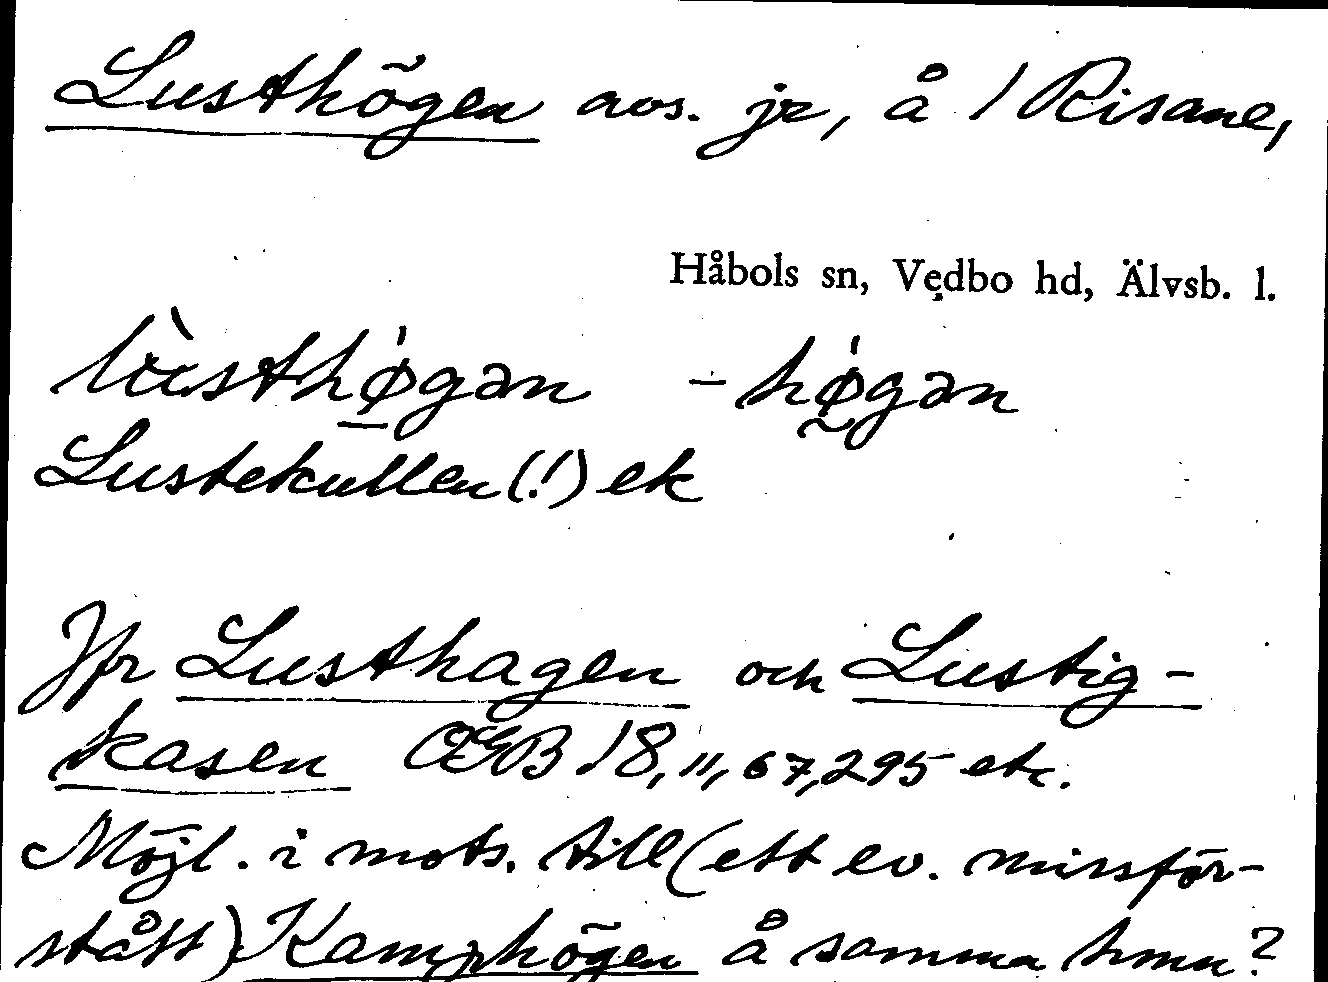 Lusthögen avs. jr, å 1 Risane,
Håbols sn, Vedbo hd, Älvsb. l.
lùsthǿ̱gən –hǿ̰gən
Lustekullen (!) ek
Jfr Lusthagen och Lustig-
kasen OGB 18, 11, 67, 295 etc.
Möjl. i mots. till (ett ev. missför-
stått) Kamphögen å samma hmn?